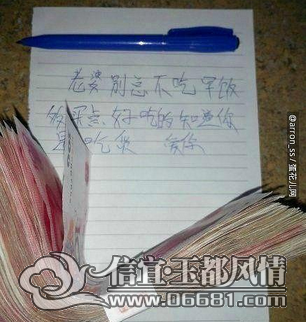 老婆别总不吃早饭
给买点好吃的知道你
吃
爱你
@arron_ss/蛋花儿网
信宜·玉都风情
www.06681.com